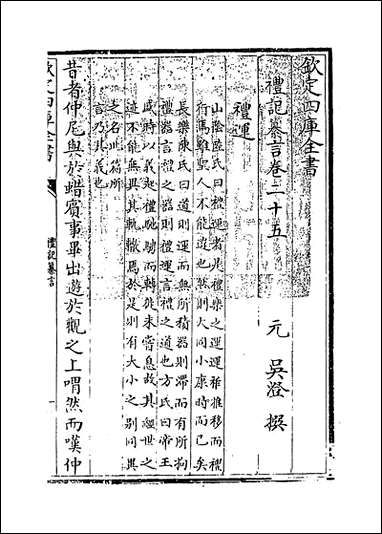 欽定四庫全書
禮記纂言卷二十五
元 吳澄 撰
禮運
山陰陸氏曰禮運者是禮樂之運運雖推移而禮
行焉雖聖人不能違也然則大同小康時而已矣
長樂陳氏曰道則運而無所積器則滯而有所拘
禮器言禮之器則禮運言禮之道也方氏曰帝王
盛時以義起禮騁而轉徙未嘗息故其經世之
迹不能無異其軌轍焉於是則有大小之别同異
之名此篇所
言乃其義也
昔者仲尼與於蜡賓事畢出遊於觀之上喟然而嘆仲
欽定四庫全書
禮記纂言
一